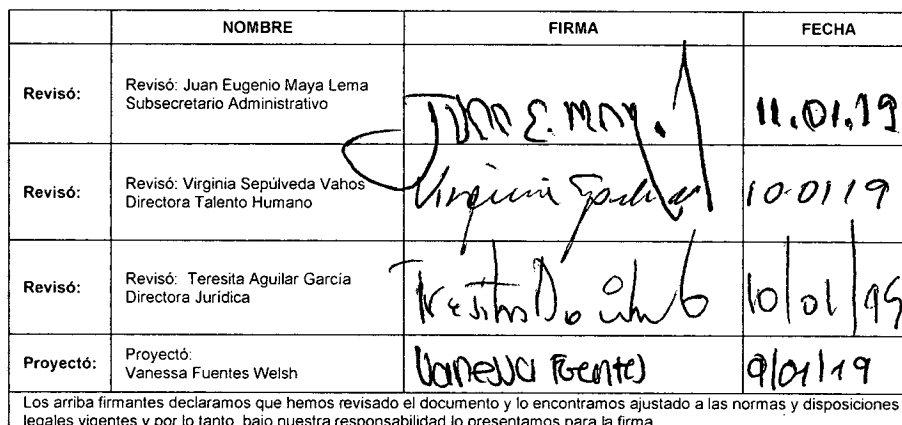 NOMBRE FIRMA FECHA
Revisó: Revisó: Juan Eugenio Maya Lema
Subsecretario Administrativo
Juan E. May. 11.01.19
Revisó: Revisó: Virginia Sepúlveda Vahos
Directora Talento Humano
Virginia 10-01 19
Revisó: Revisó: Teresita Aguilar García
Directora Jurídica
10/01/19
Proyectó: Proyectó:
Vanessa Fuentes Welsh
Vanessa Fuentes 9/01/19
Los arriba firmantes declaramos que hemos revisado el documento y lo encontramos ajustado a las normas y disposiciones
legales vigentes y por lo tanto, bajo nuestra responsabilidad lo presentamos para la firma.